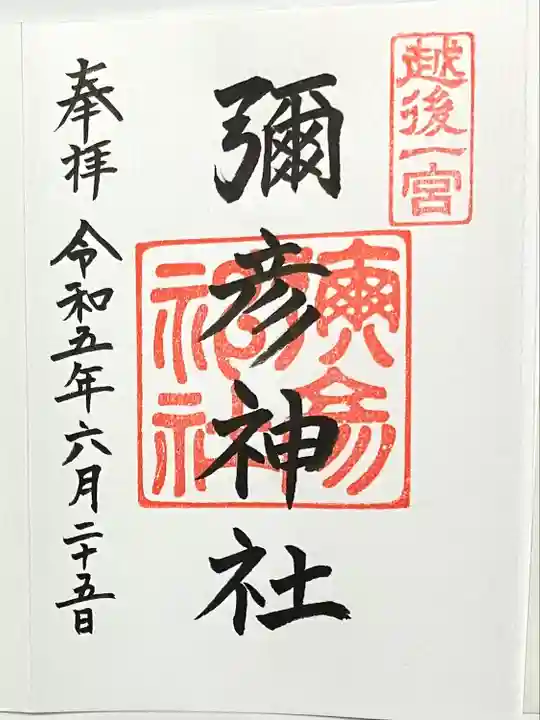 越後一宮
彌彦神社
彌彦神社
奉拝 令和五年六月二十五日